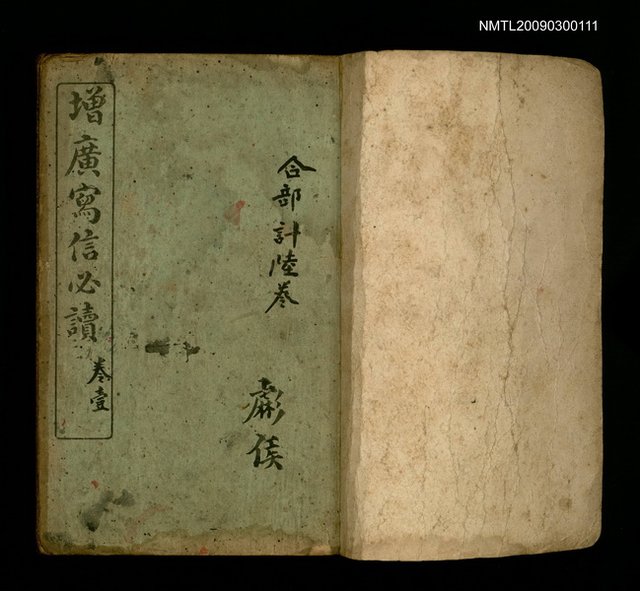 NMTL20090300111
合部計陸卷
增廣寫信必讀
卷壹